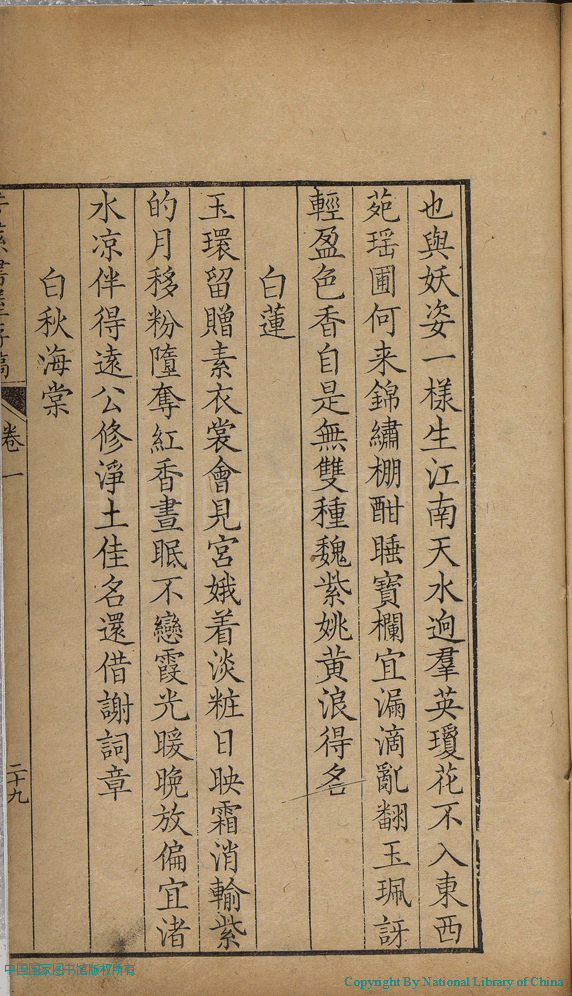 也與妖姿一樣生江南天水迥羣英瓊花不入東西
苑瑶圃何来錦繡棚酣睡寶欄宜漏滴亂翻玉珮訝
輕盈色香自是無雙種魏紫姚黃浪得名
白蓮
玉環留贈素衣裳會見宮娥着淡粧日映霜消輸紫
的月移粉墮奪紅香晝眠不戀霞光暖晚放偏宜渚
水凉伴得遠公修淨土佳名還借謝詞章
白秋海棠
書
存稿
卷一
二十九
中国国家图书馆版权所有
Copyright By National Library of China